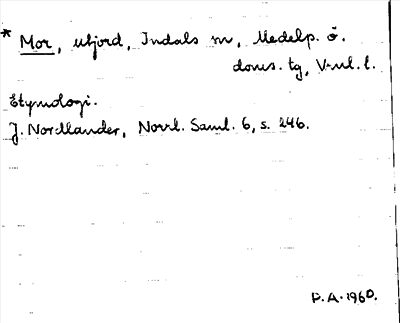 * Mor, utjord, Indals sn, Medelp. ö.
doms. tg, V-nl. l.
Etymologi.
J. Nordlander, Norrl. Saml. 6, s. 246.
P.A. 1960.